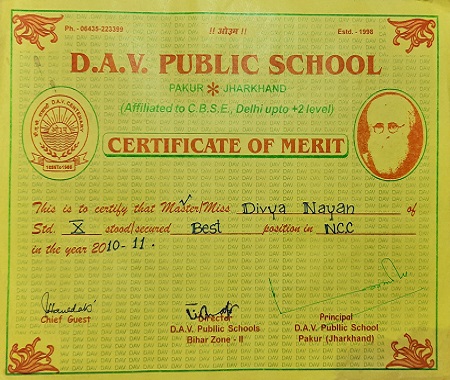 Ph. - 06435-223399 !! ओ३म् !! Estd. - 1998
D.A.V. PUBLIC SCHOOL
PAKUR * JHARKHAND
(Affiliated to C.B.S.E., Delhi upto +2 level)
CERTIFICATE OF MERIT
This is to certify that Master/Miss Divya Nayan of
Std. X stood/secured Best position in NCC
in the year 2010-11.
Chief Guest
Director
D.A.V. Public Schools
Bihar Zone - II
Principal
D.A.V. Public School
Pakur (Jharkhand)